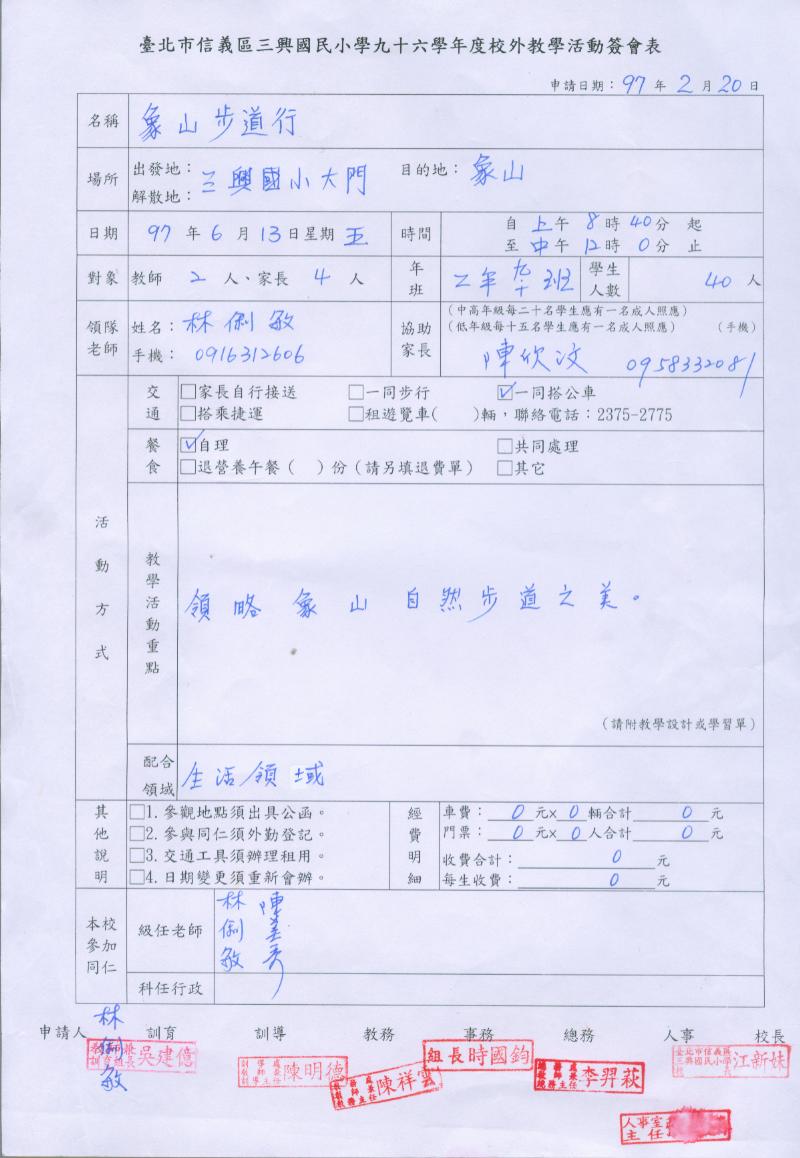 臺北市信義區三興國民小學九十六學年度校外教學活動簽會表
申請日期：97 年 2 月 20 日
名稱 象山步道行
場所 出發地： 解散地： 三興國小大門 目的地： 象山
日期 97 年 6 月 13 日星期 五 時間 自 上 午 8 時 40 分 起
至 中 午 12 時 0 分 止
對象 教師 2 人、家長 4 人 年班 二年九十班 學生人數 40 人
領隊老師 姓名：林俐敏
手機：0916312606
協助家長 (中高年級每二十名學生應有一名成人照應)
(低年級每十五名學生應有一名成人照應) (手機)
陳欣汶 0958332081
活動方式
交通 □家長自行接送 □一同步行 ☑一同搭公車
□搭乘捷運 □租遊覽車( )輛，聯絡電話：2375-2775
餐食 ☑自理 □共同處理
□退營養午餐( )份(請另填退費單) □其它
教學活動重點
領略象山自然步道之美。
(請附教學設計或學習單)
配合領域 生活領域
其他說明
□1.參觀地點須出具公函。
□2.參與同仁須外勤登記。
□3.交通工具須辦理租用。
□4.日期變更須重新會辦。
經費明細
車費： 0 元x 0 輛合計 0 元
門票： 0 元x 0 人合計 0 元
收費合計： 0 元
每生收費： 0 元
本校參加同仁
級任老師 林俐敏
科任行政
申請人 訓育 訓導 教務 事務 總務 人事 校長
林俐敏
教師兼訓育組長 吳建億
陳明德
陳祥雲
組長時國鈞
李羿萩
臺北市信義區三興國民小學校長 江新妹
人事室主任